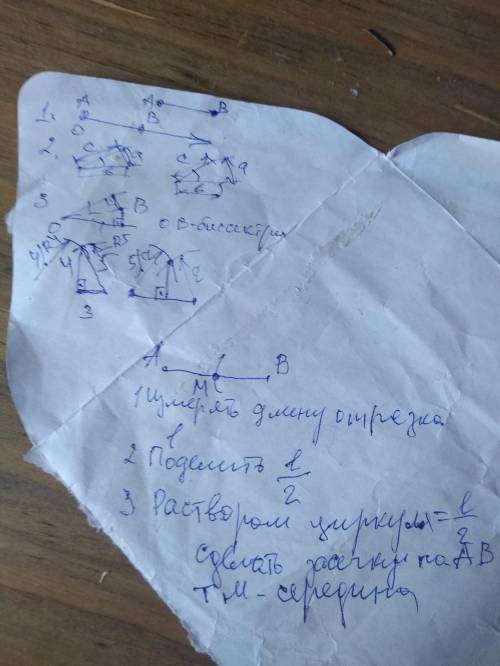 A A B
1. O B
2. C a C a
b b
3 B
O OB-биссектриса
4 R4 R5 5
4 5
3
A M B
1 Измерять длину отрезка
l
2 Поделить l/2
3 Раствором циркуля = l/2
сделать засечку на AB
т M - середина